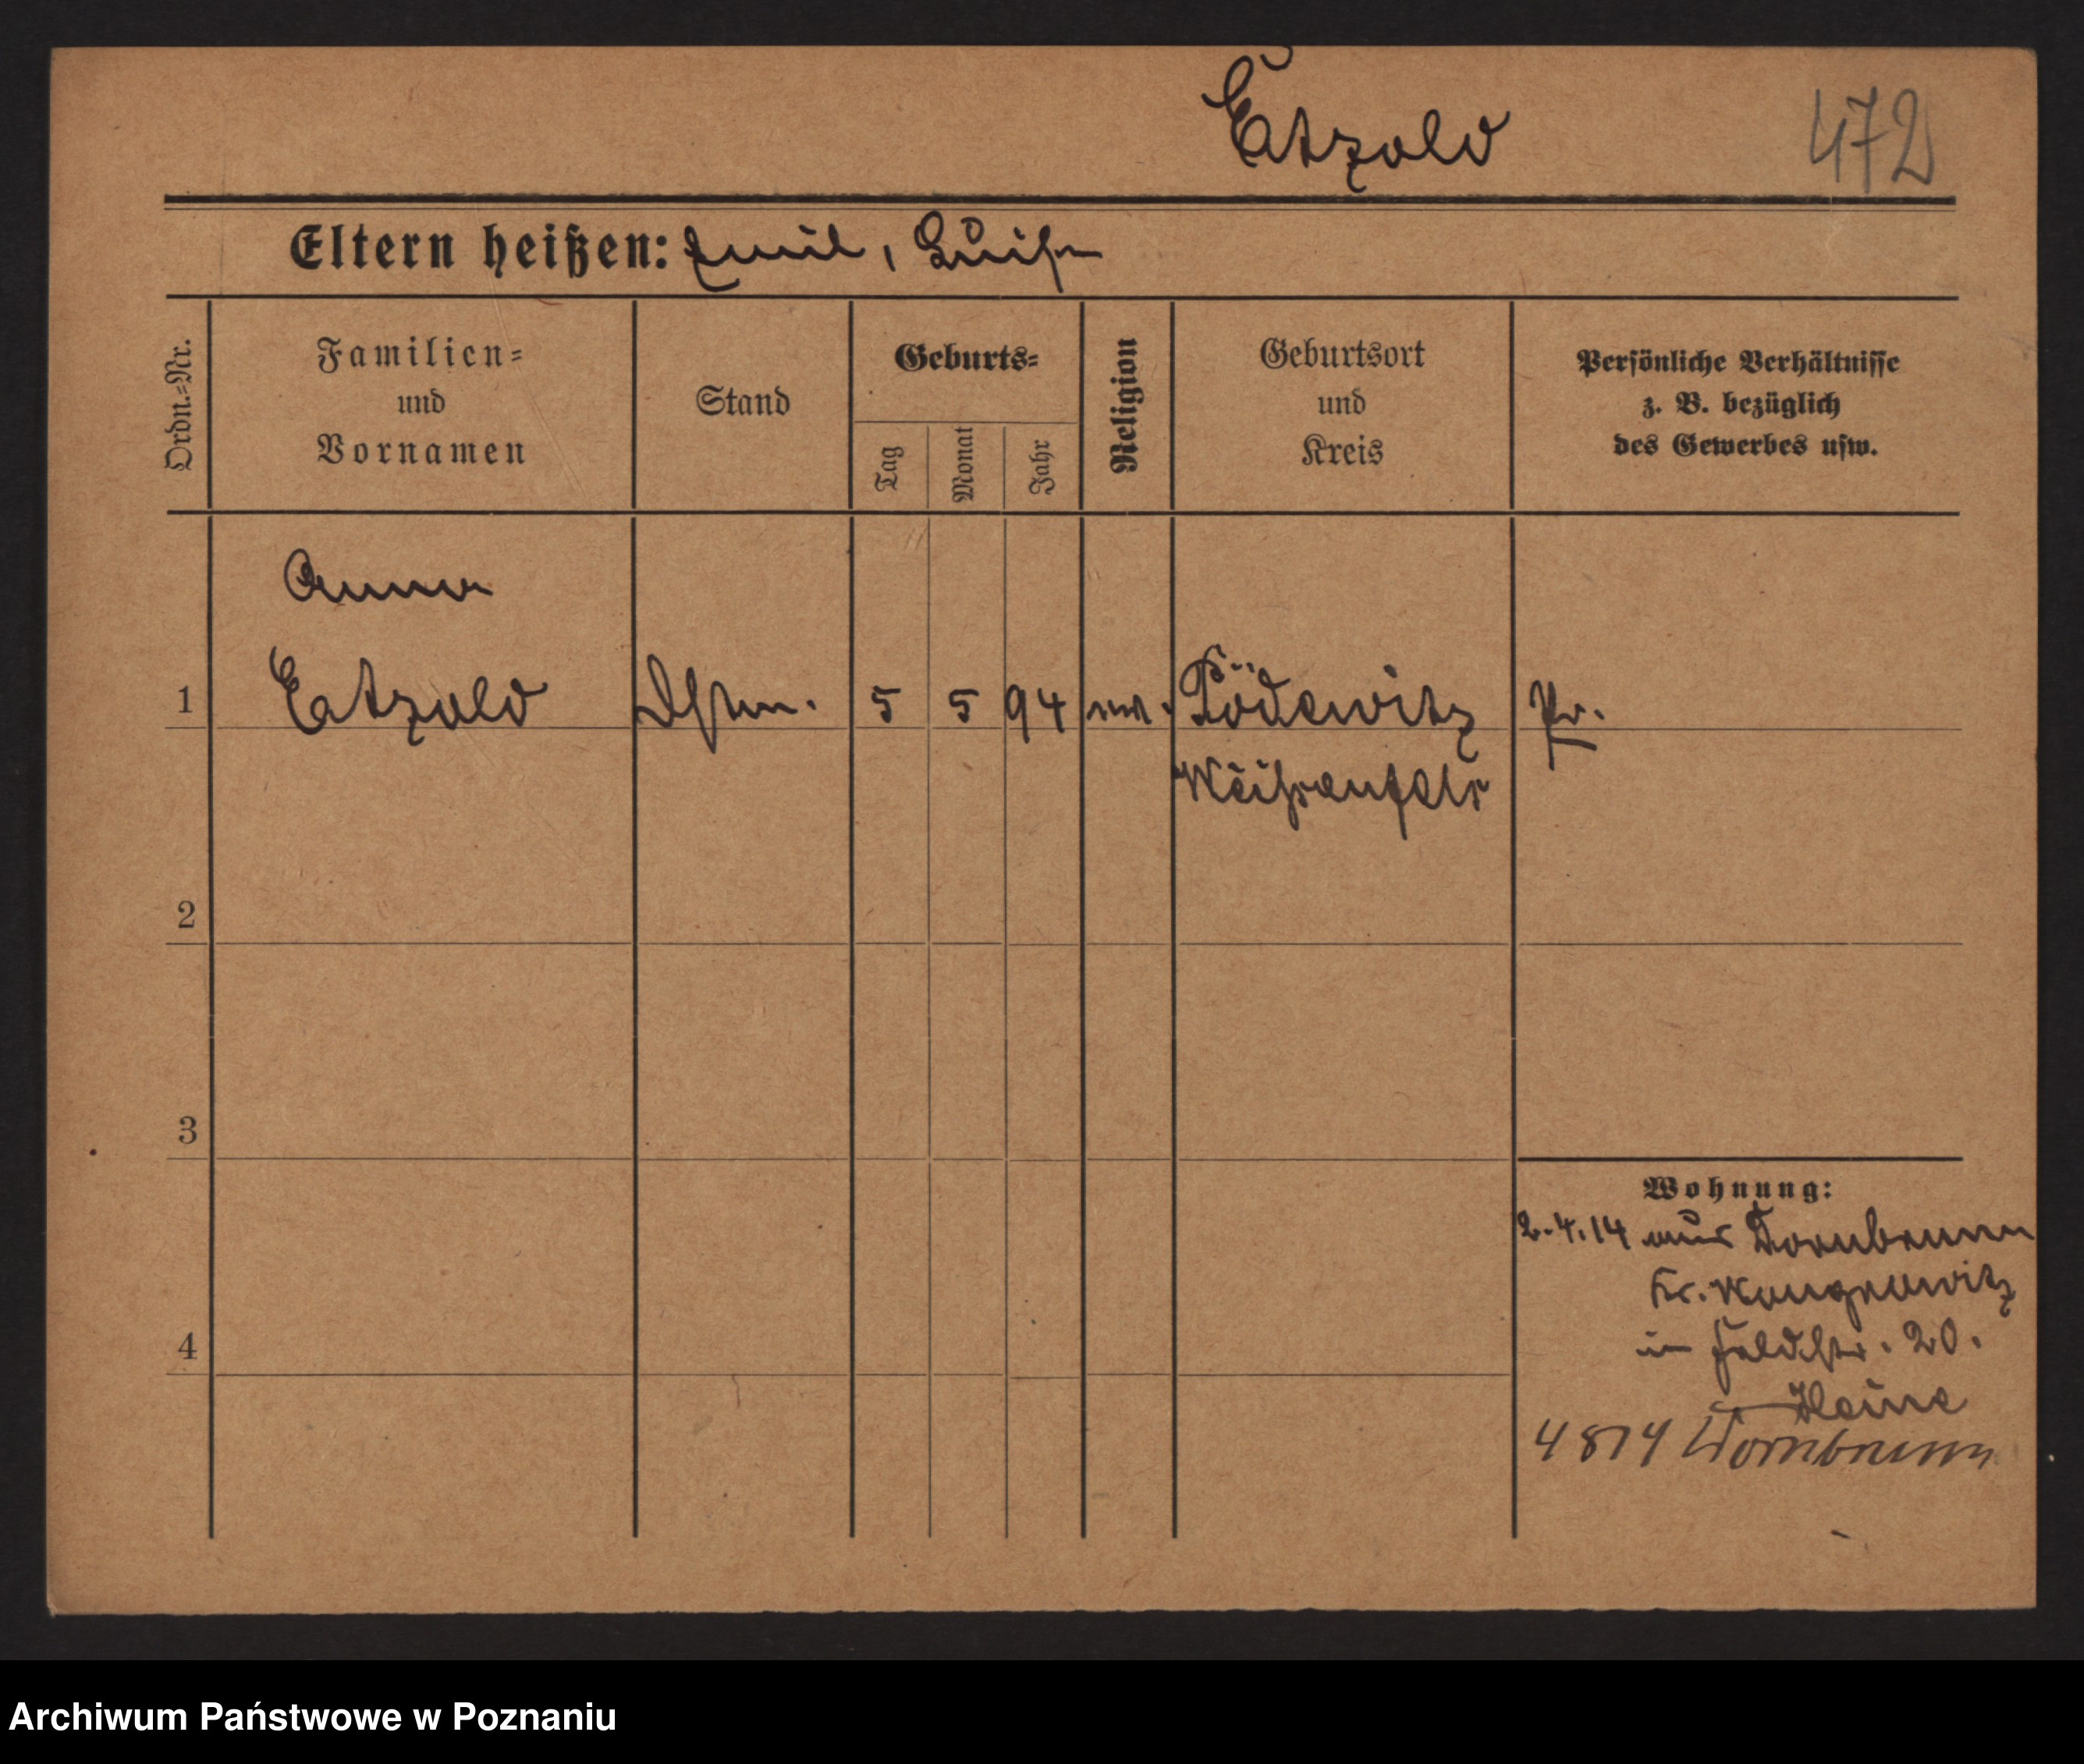 Etzold
472
Eltern heißen: Emil, Luise
Ordn.-Nr.
Familien-
und
Vornamen
Stand
Geburts-
Tag
Monat
Jahr
Religion
Geburtsort
und
Kreis
Persönliche Verhältnisse
z. B. bezüglich
des Gewerbes usw.
Anna
1 Etzold 5 5 94 Pödewitz Pr.
Weißenfels
2
3
4
Wohnung:
2.4.14 aus Dornbrunn
Kr. Wongrowitz
in Feldstr. 20.
Heine
4 8 14 Dornbrunn
Archiwum Państwowe w Poznaniu